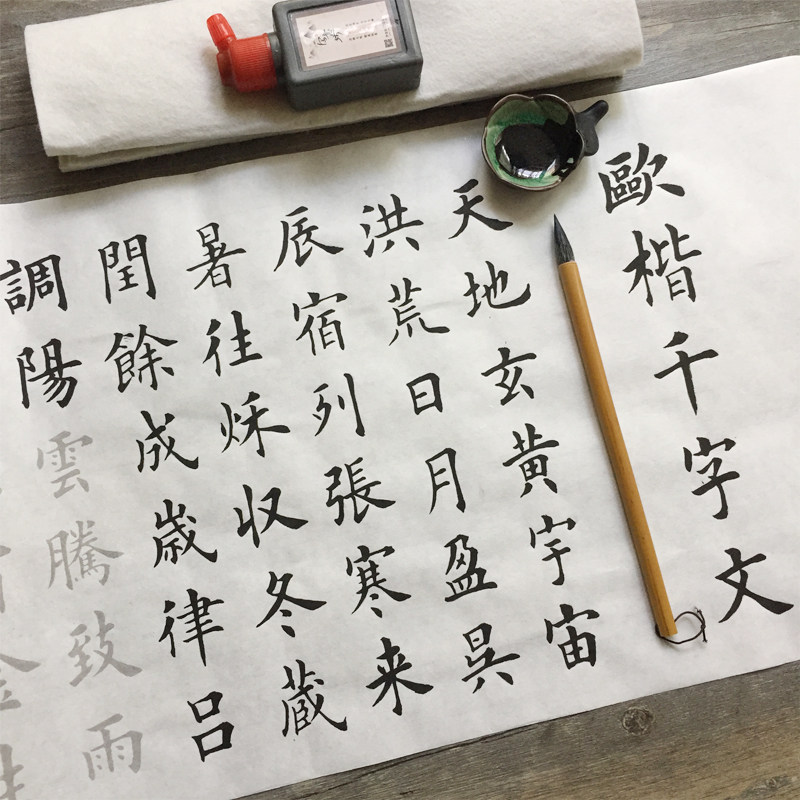 歐楷千字文
天地玄黄宇宙
洪荒日月盈昃
辰宿列張寒来
暑往秋収冬蔵
閏餘成歳律呂
調陽雲騰致雨